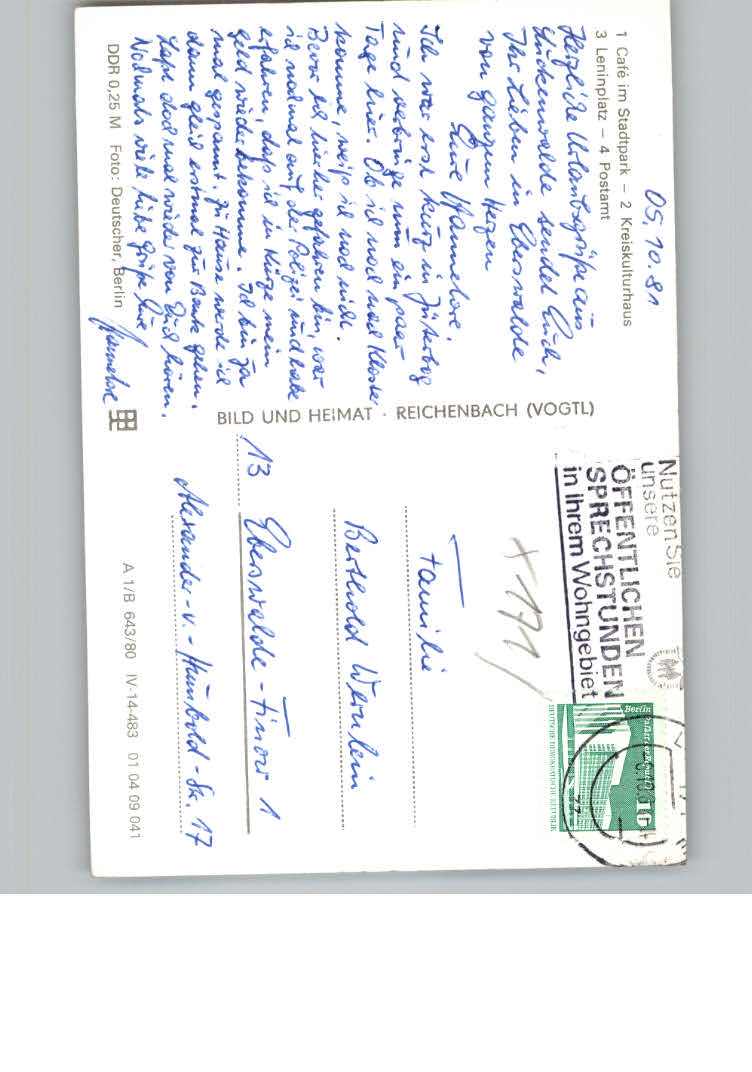 1 Café im Stadtpark – 2 Kreiskulturhaus
3 Leninplatz – 4 Postamt
05.10.81
Herzliche Urlaubsgrüße aus
Luckenwalde sendet Euch,
Ihr Lieben in Eberswalde
von ganzem Herzen
Eure Hannelore.
Ich war erst kurz in Jüterbog
und verbringe nun ein paar
Tage hier. Ob ich noch nach Kloster
komme, weiß ich noch nicht.
Bevor ich hierher gefahren bin, war
ich nochmal auf der Polizei und habe
erfahren, daß ich in Kürze mein
Geld wiederbekomme. Ich bin ja
mal gespannt. Zu Hause werde ich
dann gleich erstmal zur Bank gehen.
Laßt doch mal wieder von Euch hören.
Nochmals viele liebe Grüße Eure
Hannelore
DDR 0,25 M Foto: Deutscher, Berlin
BILD UND HEIMAT · REICHENBACH (VOGTL)
Nutzen Sie
unsere
ÖFFENTLICHEN
SPRECHSTUNDEN
in Ihrem Wohngebiet
Berlin
DEUTSCHE DEMOKRATISCHE REPUBLIK
10
+ 171/
Familie
Berthold Wernlein
13 Eberswalde-Finow 1
Alexander-v.-Humbold-Str. 17
A 1/B 643/80 IV-14-483 01 04 09 041